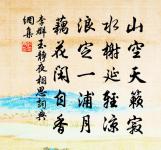 山空天籟寂
水榭延輕涼
浪定一浦月
藕花閑自香
李群玉静夜相思詞典
網集